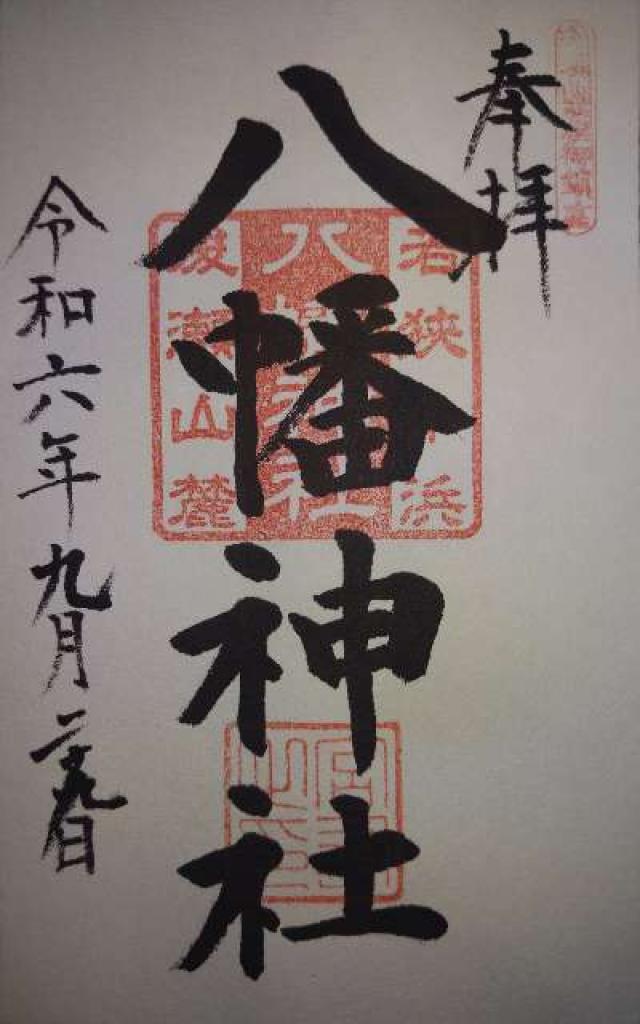 奉拝
八幡神社
若狭小浜
八幡神社
後瀬山麓
令和六年九月二十九日